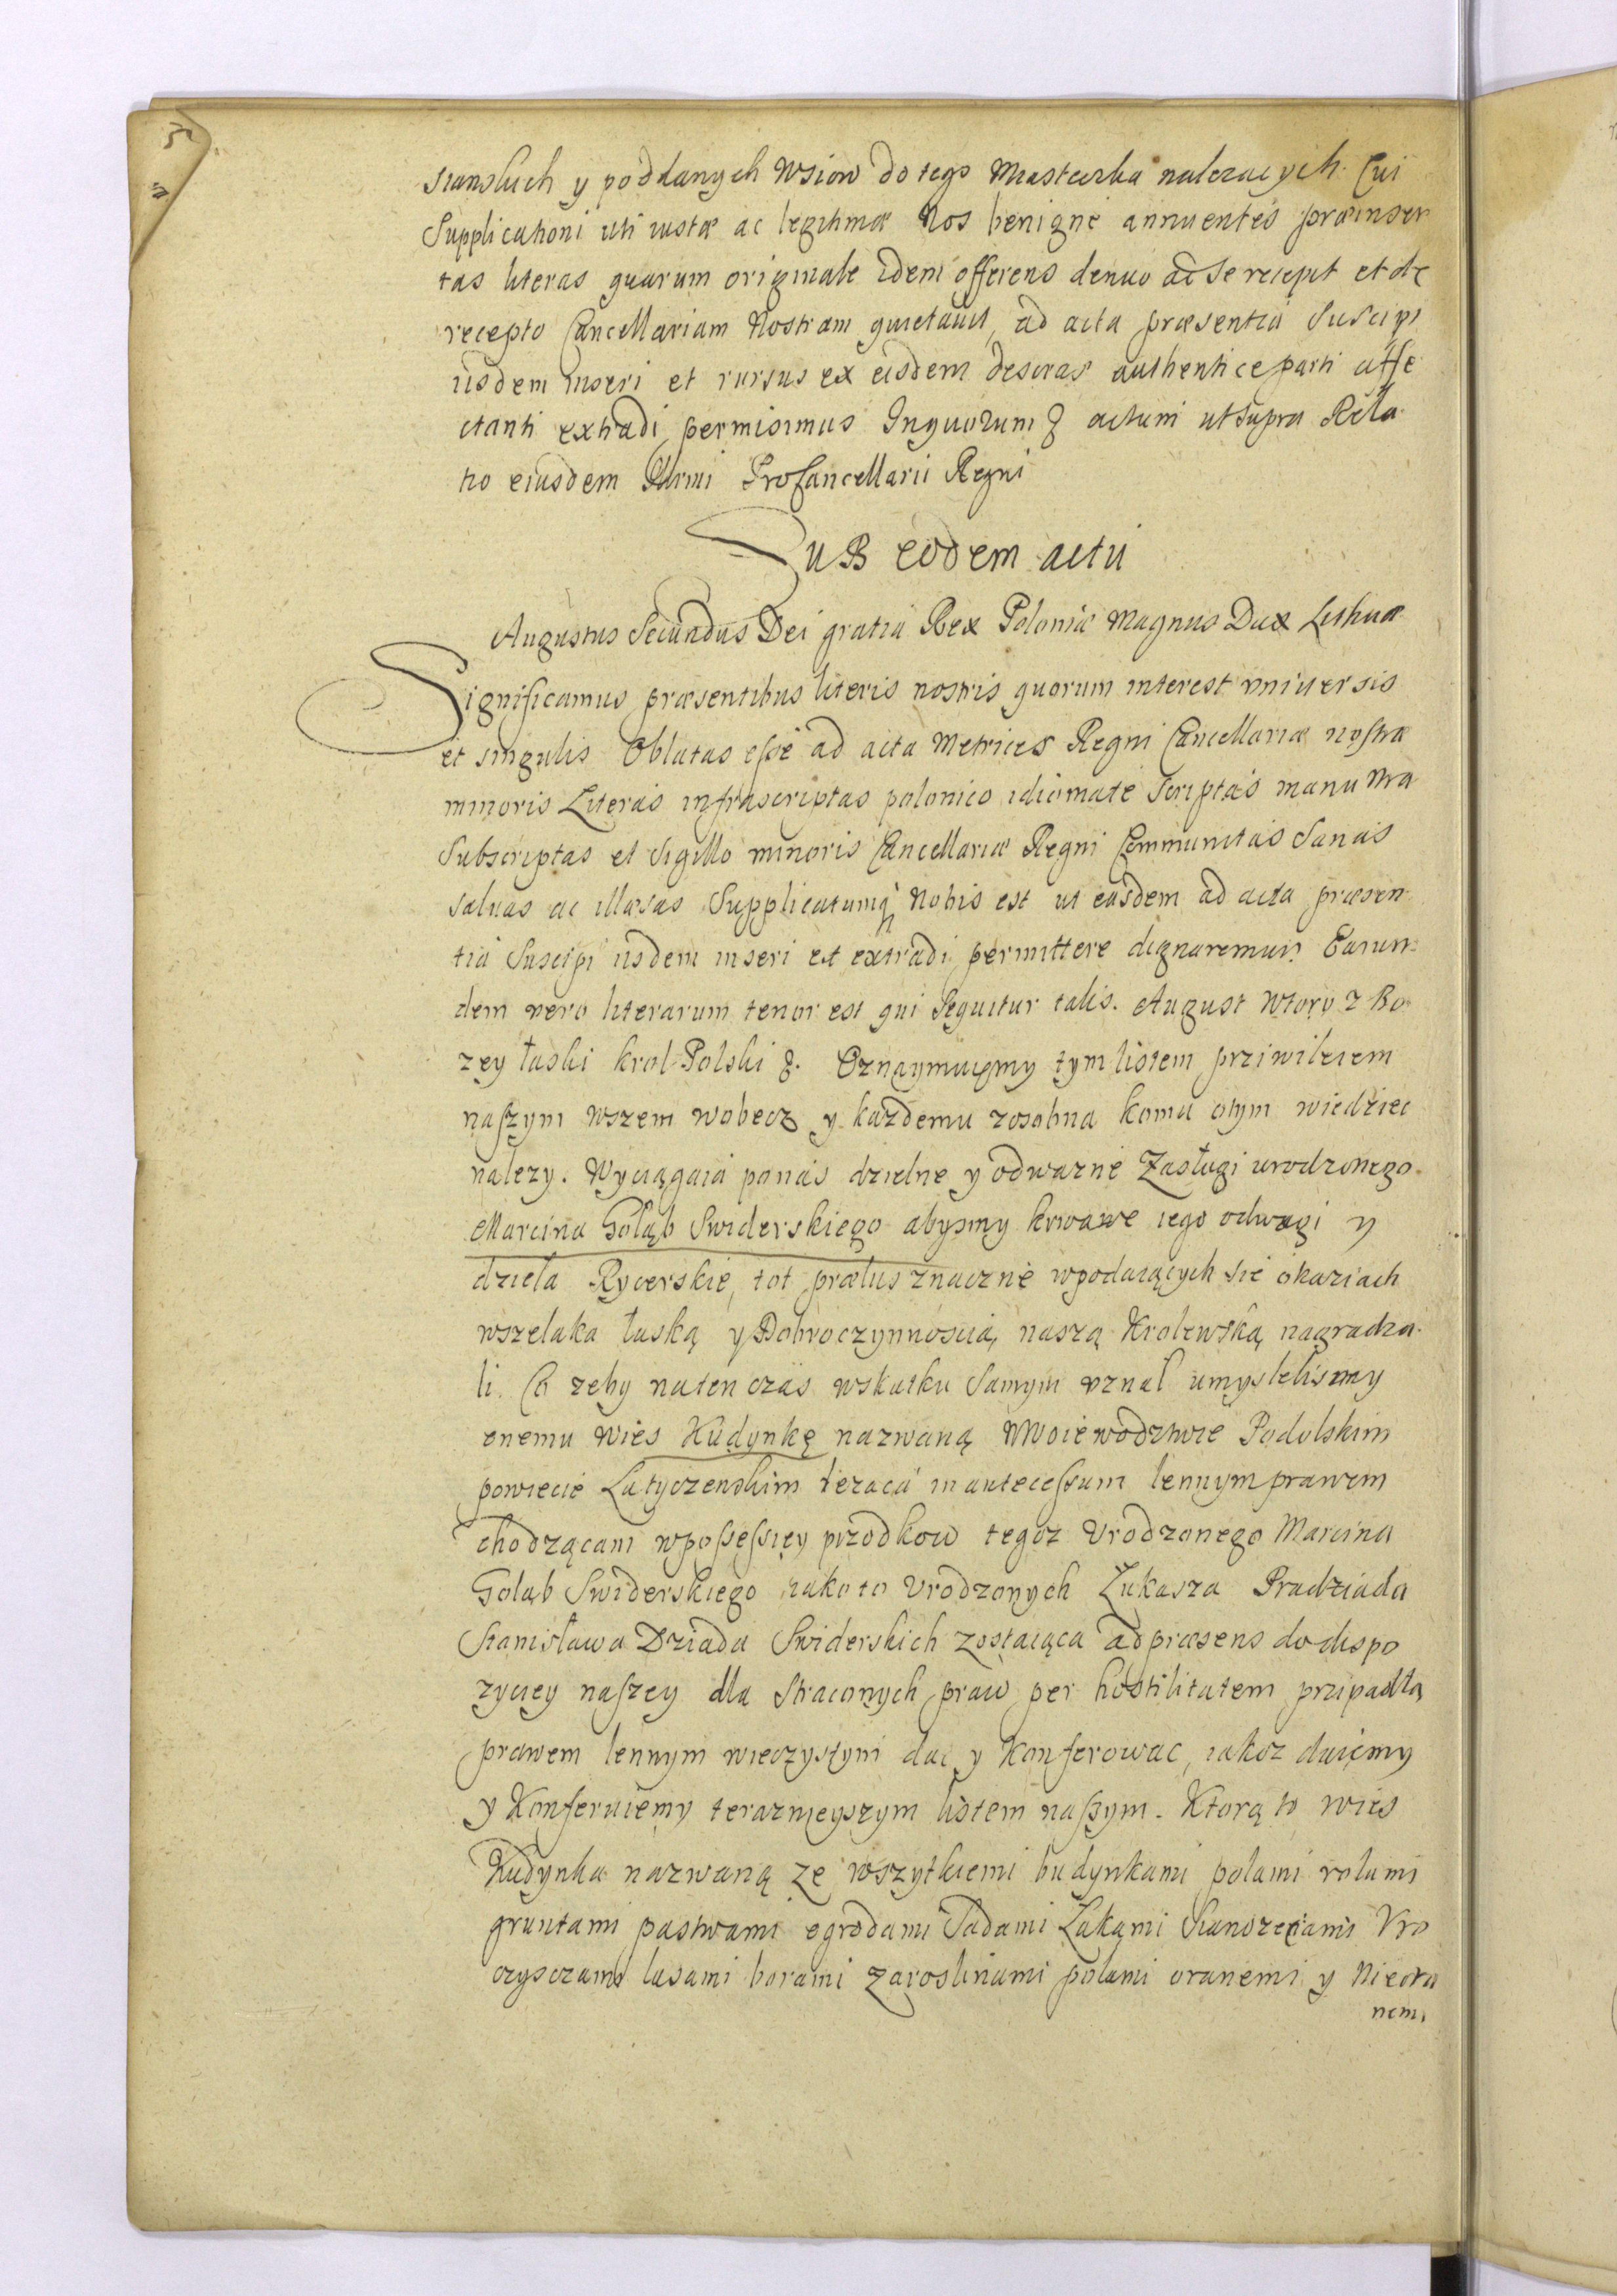 scianskich y poddanych wsiow do tego Miasteczka należących. Cui
Supplicationi uti iustæ ac legitimæ Nos benigne annuentes præinser
tas literas quarum originale idem offerens denuo ad se recepit et de
recepto Cancellariam Nostram quietavit, ad acta præsentia suscipi
iisdem inseri et rursus ex eisdem descras authentice parti affe
ctanti extradi permisimus In quorum & actum ut supra Rela
tio eiusdem Illrmi ProCancellarii Regni
SUB eodem actu
Augustus Secundus Dei gratia Rex Poloniæ Magnus Dux Lithuæ
Significamus præsentibus literis nostris quorum interest vniuersis
et singulis Oblatas eſse ad acta Metrices Regni Cancellariæ nostræ
minoris Literas infrascriptas polonico idiomate scriptas manu nra
Subscriptas et Sigillo minoris Cancellariæ Regni Communitas Sanas
saluas ac illæsas Supplicatumq Nobis est ut easdem ad acta præsen
tia Suscipi iisdem inseri et extradi permittere dignaremur. Earun
dem vero literarum tenor est qui sequitur talis. August Wtory z Bo
zey łaski krol Polski &. Oznaymuięmy tym listem prziwileiem
naſzym wszem wobecz y kazdemu zosobna komu otym wiedziec
nalezy. Wyciągaią ponas dzielne y odwazne Zasługi urodzonego
Marcina Gołąb Swiderskiego abysmy krwawe iego odwagi y
dzieła Rycerskie, tot prælus znacznie wpodaiących sie okaziach
wszelaka łaską y Dobroczynnoscią naszą Krolewską nagradza
li. Co zeby naten czas wskutku Samym vznał umyslelismy
onemu wies Kudynkę nazwaną wWoiewodztwie Podolskim
powiecie Latyczenskim lezaca in antecessum lennym prawem
chodzącam wpoſseſsiey przodkow tegoz Vrodzonego Marcina
Gołąb Swiderskiego iako to Vrodzonych Łukasza Pradziada
Stanisława Dziada Swiderskich zostaiąca ad præsens do dispo
zyciey naſzey dla Straconych praw per hostilitatem przipadłą
prawem lennym wieczystym dac y Konferowac, iakoz daiemy
y Konferuiemy terazniejszym listem naſzym. Ktorą to wies
Kudynka nazwaną ze wszytkiemi budynkami polami rolami
gruntami pastwami ogrodami Sadami Łąkami Sianozęciami Vro
czysczami lasami borami zaroslinami polami oranemi y Nieora
nemi